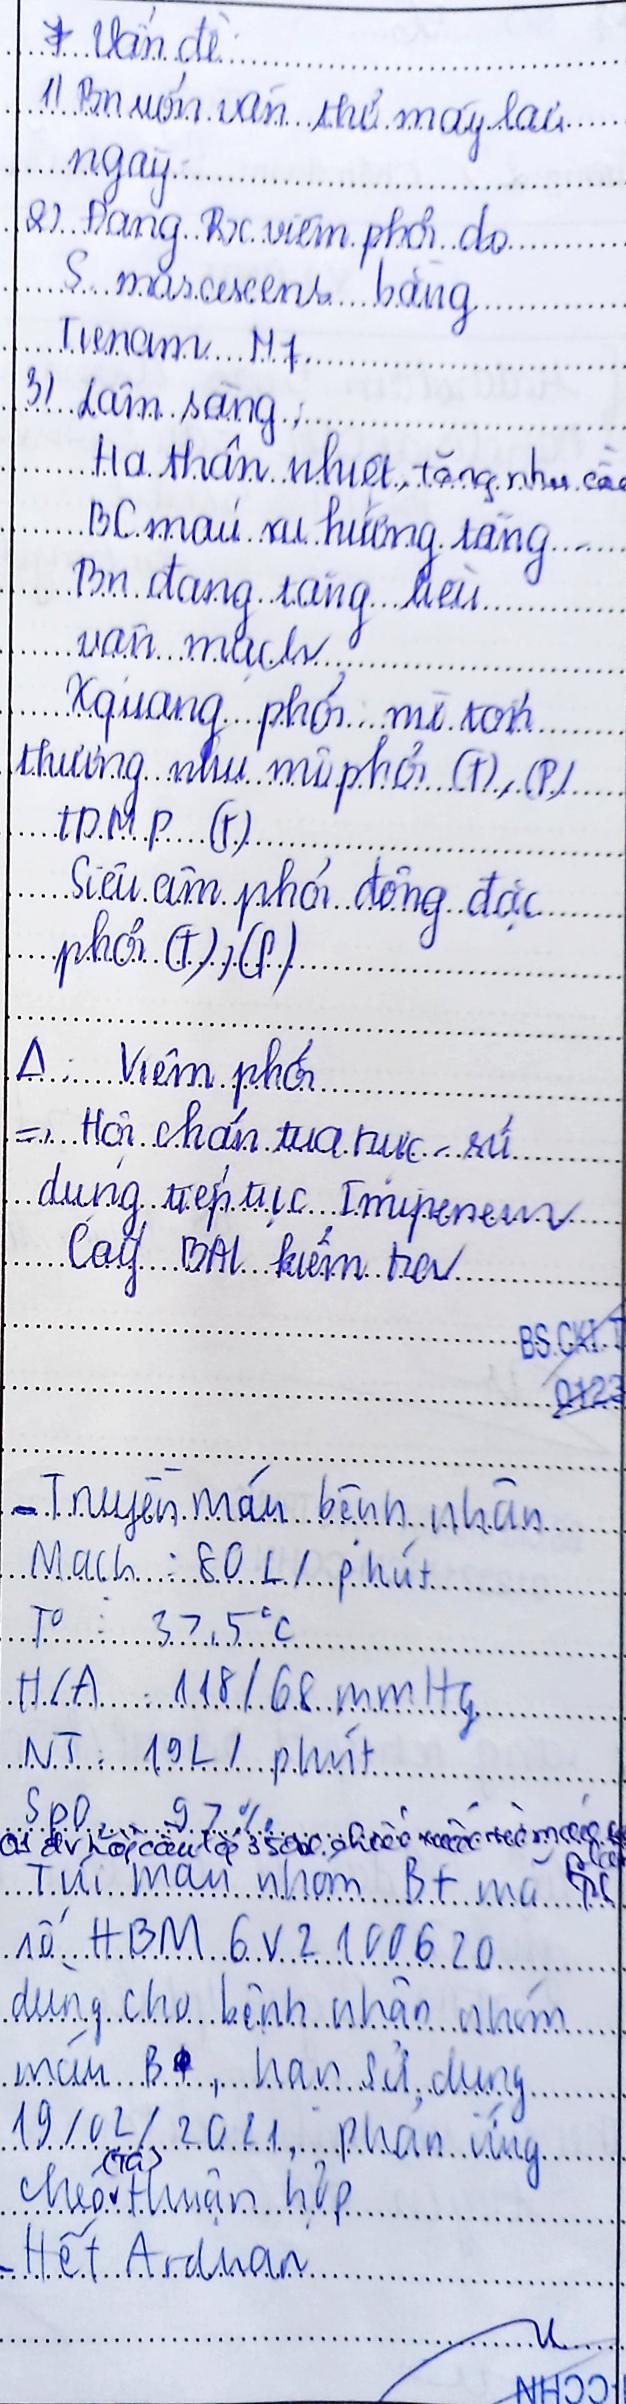 * Vấn đề:
1) Bn uốn ván thở máy lâu
ngày
2) Đang Rx viêm phổi do
S. marcescens bằng
Tienam N7
3) Lâm sàng:
Hạ thân nhiệt, tăng nhu cầu
BC máu xu hướng tăng
Bn đang tăng liều
vận mạch
Xquang phổi: mờ tổn
thương như mũ phổi (T), (P)
TDMP (T)
Siêu âm phổi đông đặc
phổi (T), (P)
Δ: Viêm phổi
=> Hội chẩn tua trực - sử
dụng tiếp tục Imipenem
Cấy BAL kiểm tra
BS.CKI. T
0123
- Truyền máu bệnh nhân
Mạch: 80 L/ phút
T°: 37,5°C
H/A: 118/68 mmHg
NT: 19L/ phút
SpO2 97%
01 đv hồng cầu lắng 350ml
Túi máu nhóm B+ mã
số HBM 6V2100620
dùng cho bệnh nhân nhóm
máu B, hạn sử dụng
19/02/2021, phản ứng
chéo (tại) thuận hợp
- Hết Arduan
CCHN